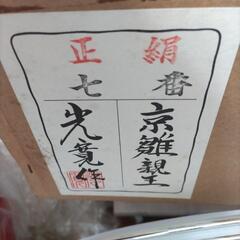 正絹
七番
京雛親王
光寛作